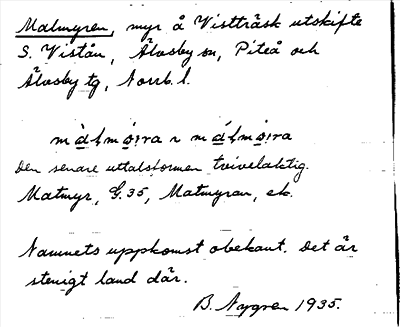 Malmyren, myr å Vistträsk utskifte
S. Vistån, Älvsby sn, Piteå och
Älvsby tg, Norrb. l.
Den senare uttalsformen tvivelaktig.
Matmyr, G. 35, Matmyran, ek.
Namnets uppkomst obekant. Det är
stenigt land där.
B. Nygren 1935.